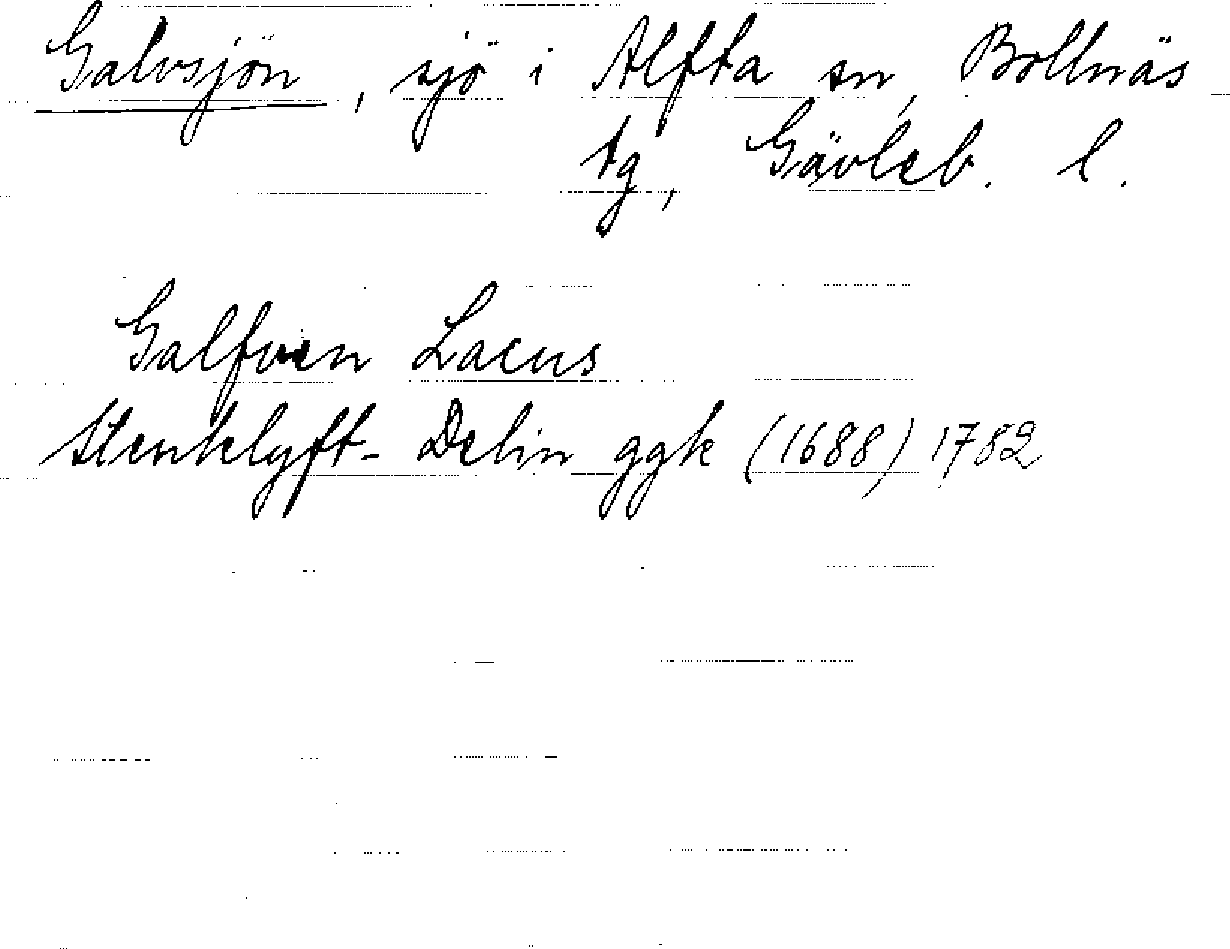 Galvsjön, sjö i Alfta sn, Bollnäs
tg, Gävleb. l.
Galfven Lacus
Stenklyft- Delin ggk (1688) 1782